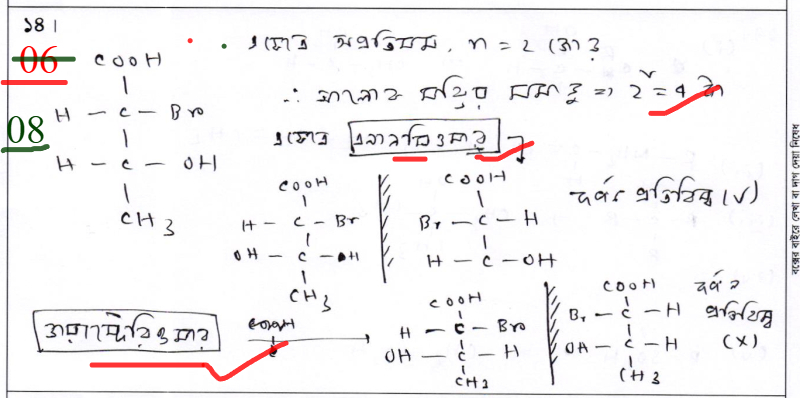 ১৪।
06
08
COOH
H — C — Br
H — C — OH
CH3
এক্ষেত্রে অপ্রতিসম, n = 2 জোড়
∴ আলোক সক্রিয় সমাণু = 2 = 4 টি
এক্ষেত্রে এনানসিওমার
COOH
H — C — Br
OH — C — H
CH3
COOH
Br — C — H
H — C — OH
দর্পন প্রতিবিম্ব (√)
ডায়াস্টেরিওমার
COOH
C
COOH
H — C — Br
OH — C — H
CH3
COOH
Br — C — H
OH — C — H
CH3
দর্পন
প্রতিবিম্ব
(X)
বক্সের বাইরে লেখা বা দাগ দেয়া নিষেধ